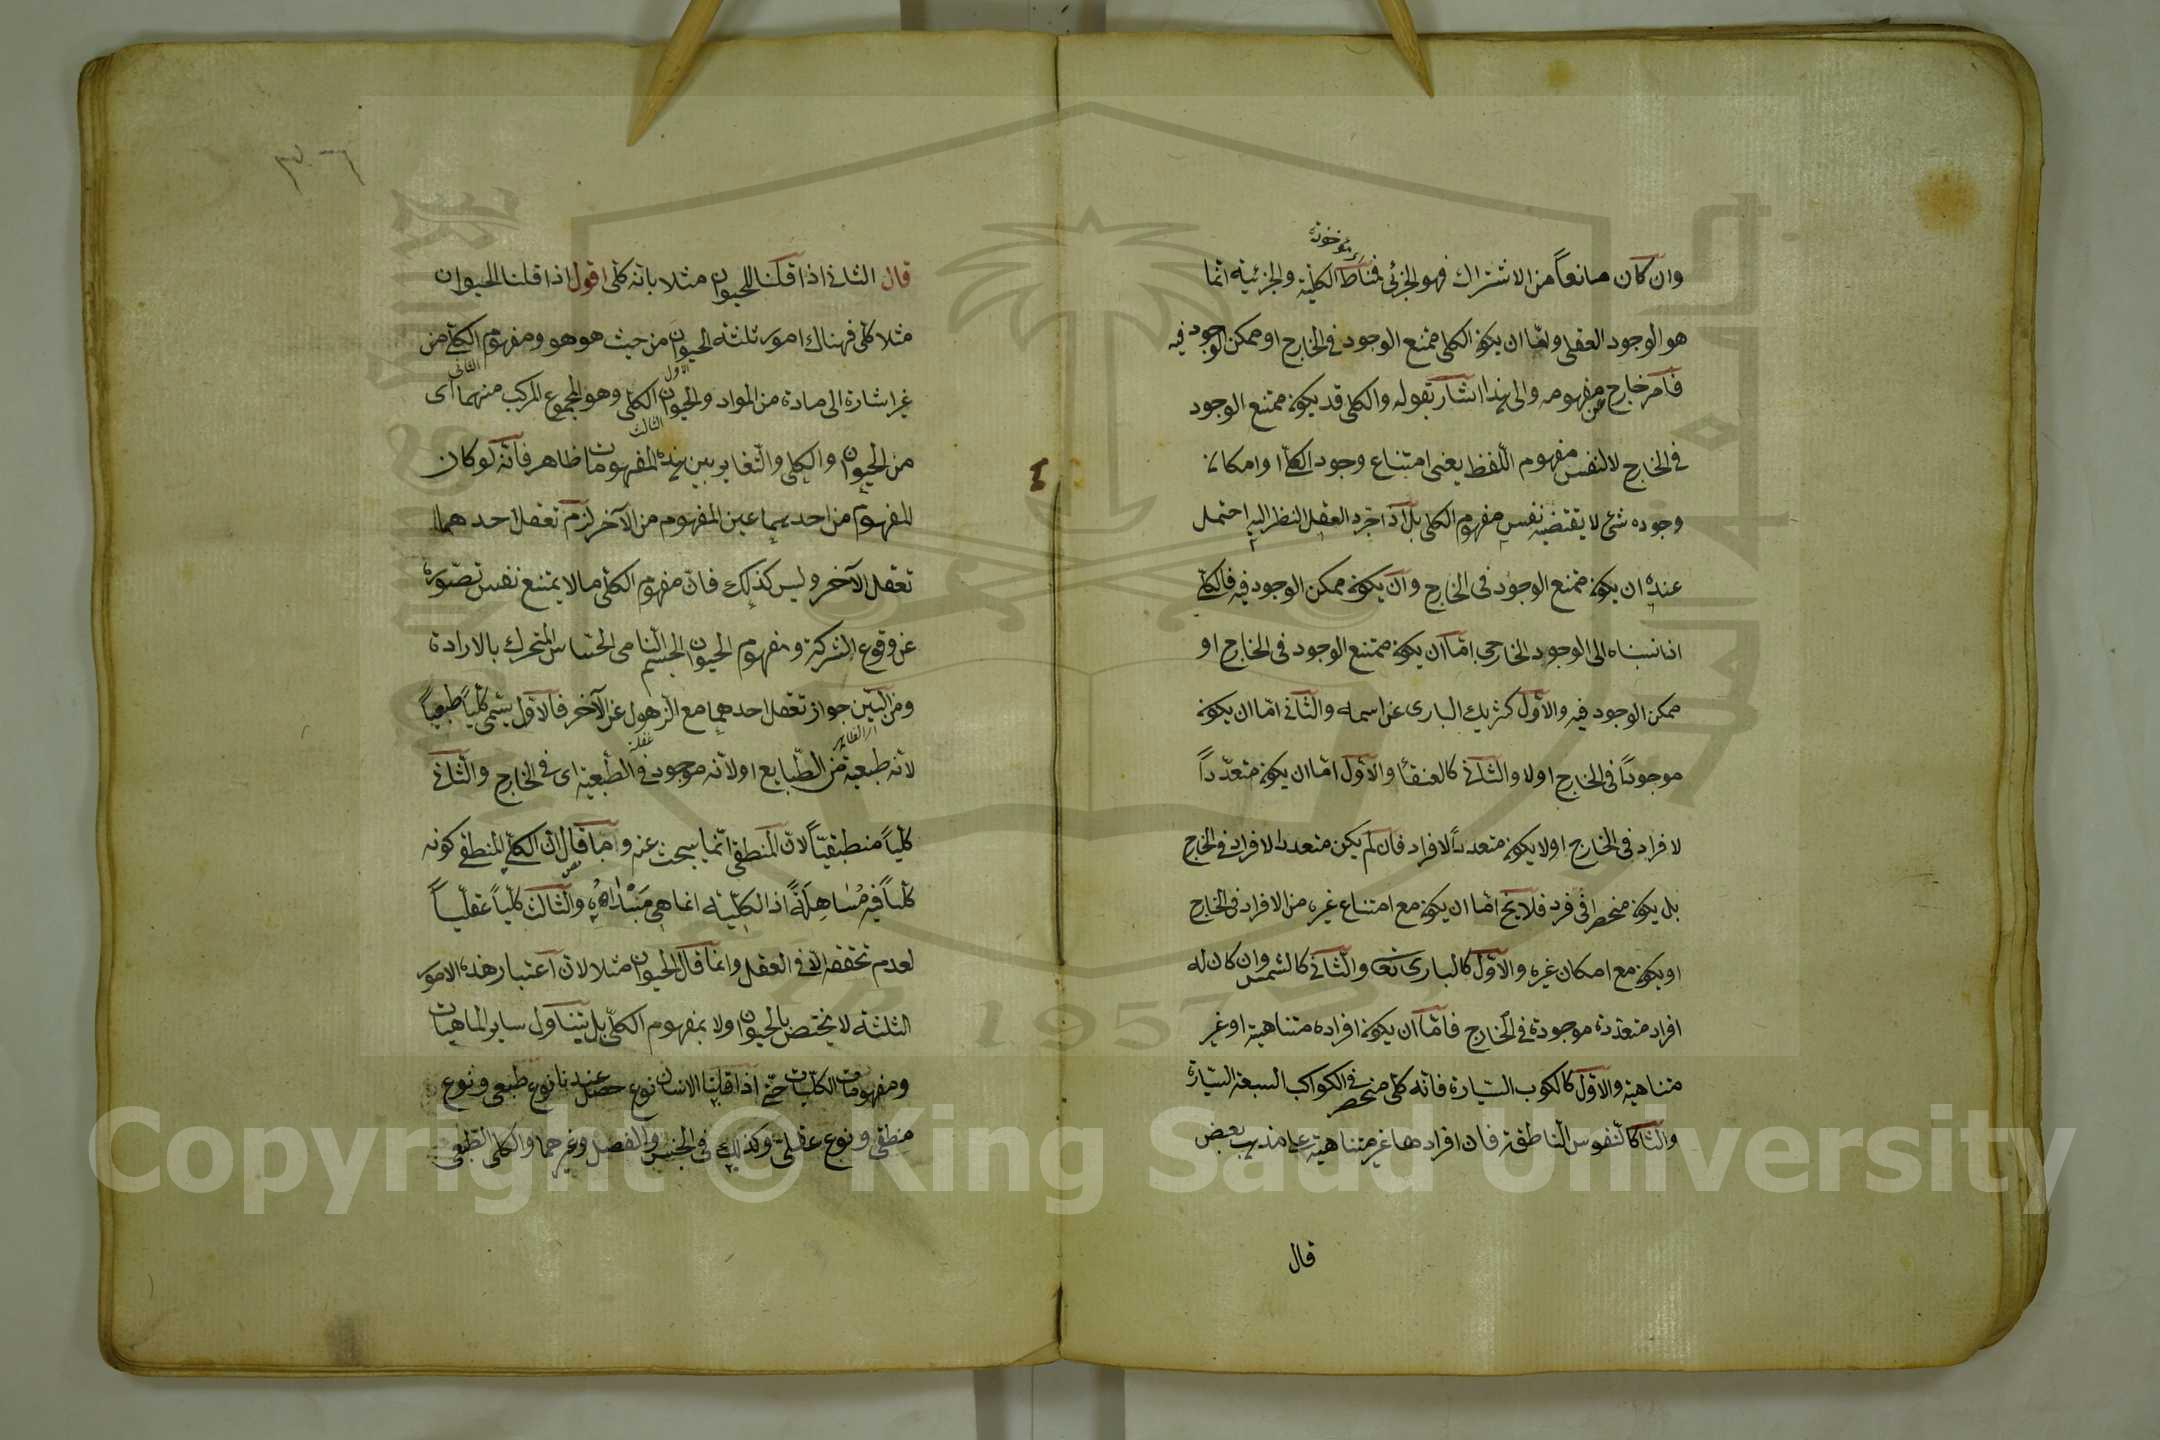 مؤخوذة
وان كان مانعاً من الاشتراك فهو الجزئي فمناط الكلية والجزئية انما
هو الوجود العقلي واما ان يكون الكلي ممتنع الوجود في الخارج او ممكن الوجود فيه
فامر خارج عن مفهومه والى هذا اشار بقوله والكلي قد يكون ممتنع الوجود
في الخارج لا لنفس مفهوم اللفظ يعني امتناع وجود الكلي او امكان
وجوده شئ لا يقتضيه نفس مفهوم الكلي بل اذا جرد العقل النظر اليه احتمل
عنده ان يكون ممتنع الوجود في الخارج وان يكون ممكن الوجود فيه فالكلي
اذا نسبناه الى الوجود الخارجي امّا ان يكون ممتنع الوجود في الخارج او
ممكن الوجود فيه والاوّل كشريك البارى عز اسمه والثاني امّا ان يكون
موجوداً في الخارج او لا والثاني كالعنقأ والاوّل امّا ان يكون متعدّداً
لافراد في الخارج او لا يكون متعدداً لافراد فان لم يكن متعدد الافراد في الخارج
بل يكون منحصرا في فرد فلا يخ امّا ان يكون مع امتناع غيره من الافراد في الخارج
او يكون مع امكان غيره والاوّل كالبارى تعا والثاني كالشمس وان كان له
افراد متعددة موجودة في الخارج فامّا ان يكون افراده متناهية او غير
متناهية والاوّل كالكوكب السيّارة فانه كلي منحصر في الكواكب السبعة السيّارة
والثا كالنفوس الناطقة فان افرادها غير متناهية على مذهب بعض
قال
قال الثاني اذا قلنا للحيوان مثلا بانه كلي اقول اذا قلنا الحيوان
مثلا كلي فهناك امور ثلثة الحيوان من حيث هو هو ومفهوم الكلي من
الاول الثاني
غير اشارة الى مادة من المواد والحيوان الكلي وهو المجموع المركب منهما اى
الثالث
من الحيوان والكلي والتغاير بين هذه المفهومات ظاهر فانه لو كان
المفهوم من احدهما عين المفهوم من الآخر لزم تعقل احدهما
تعقل الآخر وليس كذلك فانّ مفهوم الكلي ما لا يمتنع نفس تصوّره
عن وقوع الشركة ومفهوم الحيوان الجسم النامى الحساس المتحرك بالارادة
ومن البيّن جواز تعقل احدهما مع الزهول عن الآخر فالاوّل يسمى كلياً طبعياً
غفلة
لانه طبيعة من الطبايع او لانه موجود في الطبيعة اى في الخارج والثاني
كلياً منطقيّاً لان المنطقي انما يبحث عنه وامّا قال ان الكلي المنطقي كونه
كلياً فيه مُساهِلَةً اذ الكلّية انما هي مَبْدَاهُ والثالث كلياً عقلياً
لعدم تحققه الا في العقل وانما قال الحيوان مثلا لان اعتبار هذه الامور
الثلثة لا يختص بالحيوان ولا بمفهوم الكلّي بل يتناول ساير الماهيات
ومفهومات الكليات حتّى اذا قلنا الانسان نوع حصل عندنا نوع طبعي ونوع
منطقي ونوع عقلي وكذلك في الجنس والفصل وغيرهما والكلي الطبعي
Copyright © King Saud University
1957